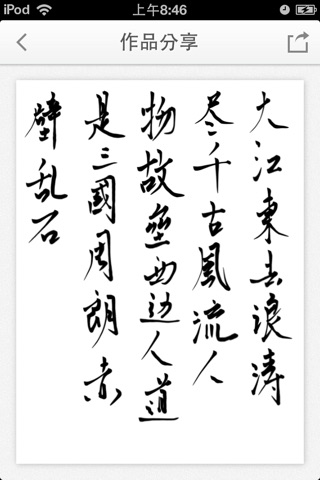 iPod 上午8:46
作品分享
大江東去浪濤
尽千古風流人
物故壘西边人道
是三國周朗赤
壁乱石